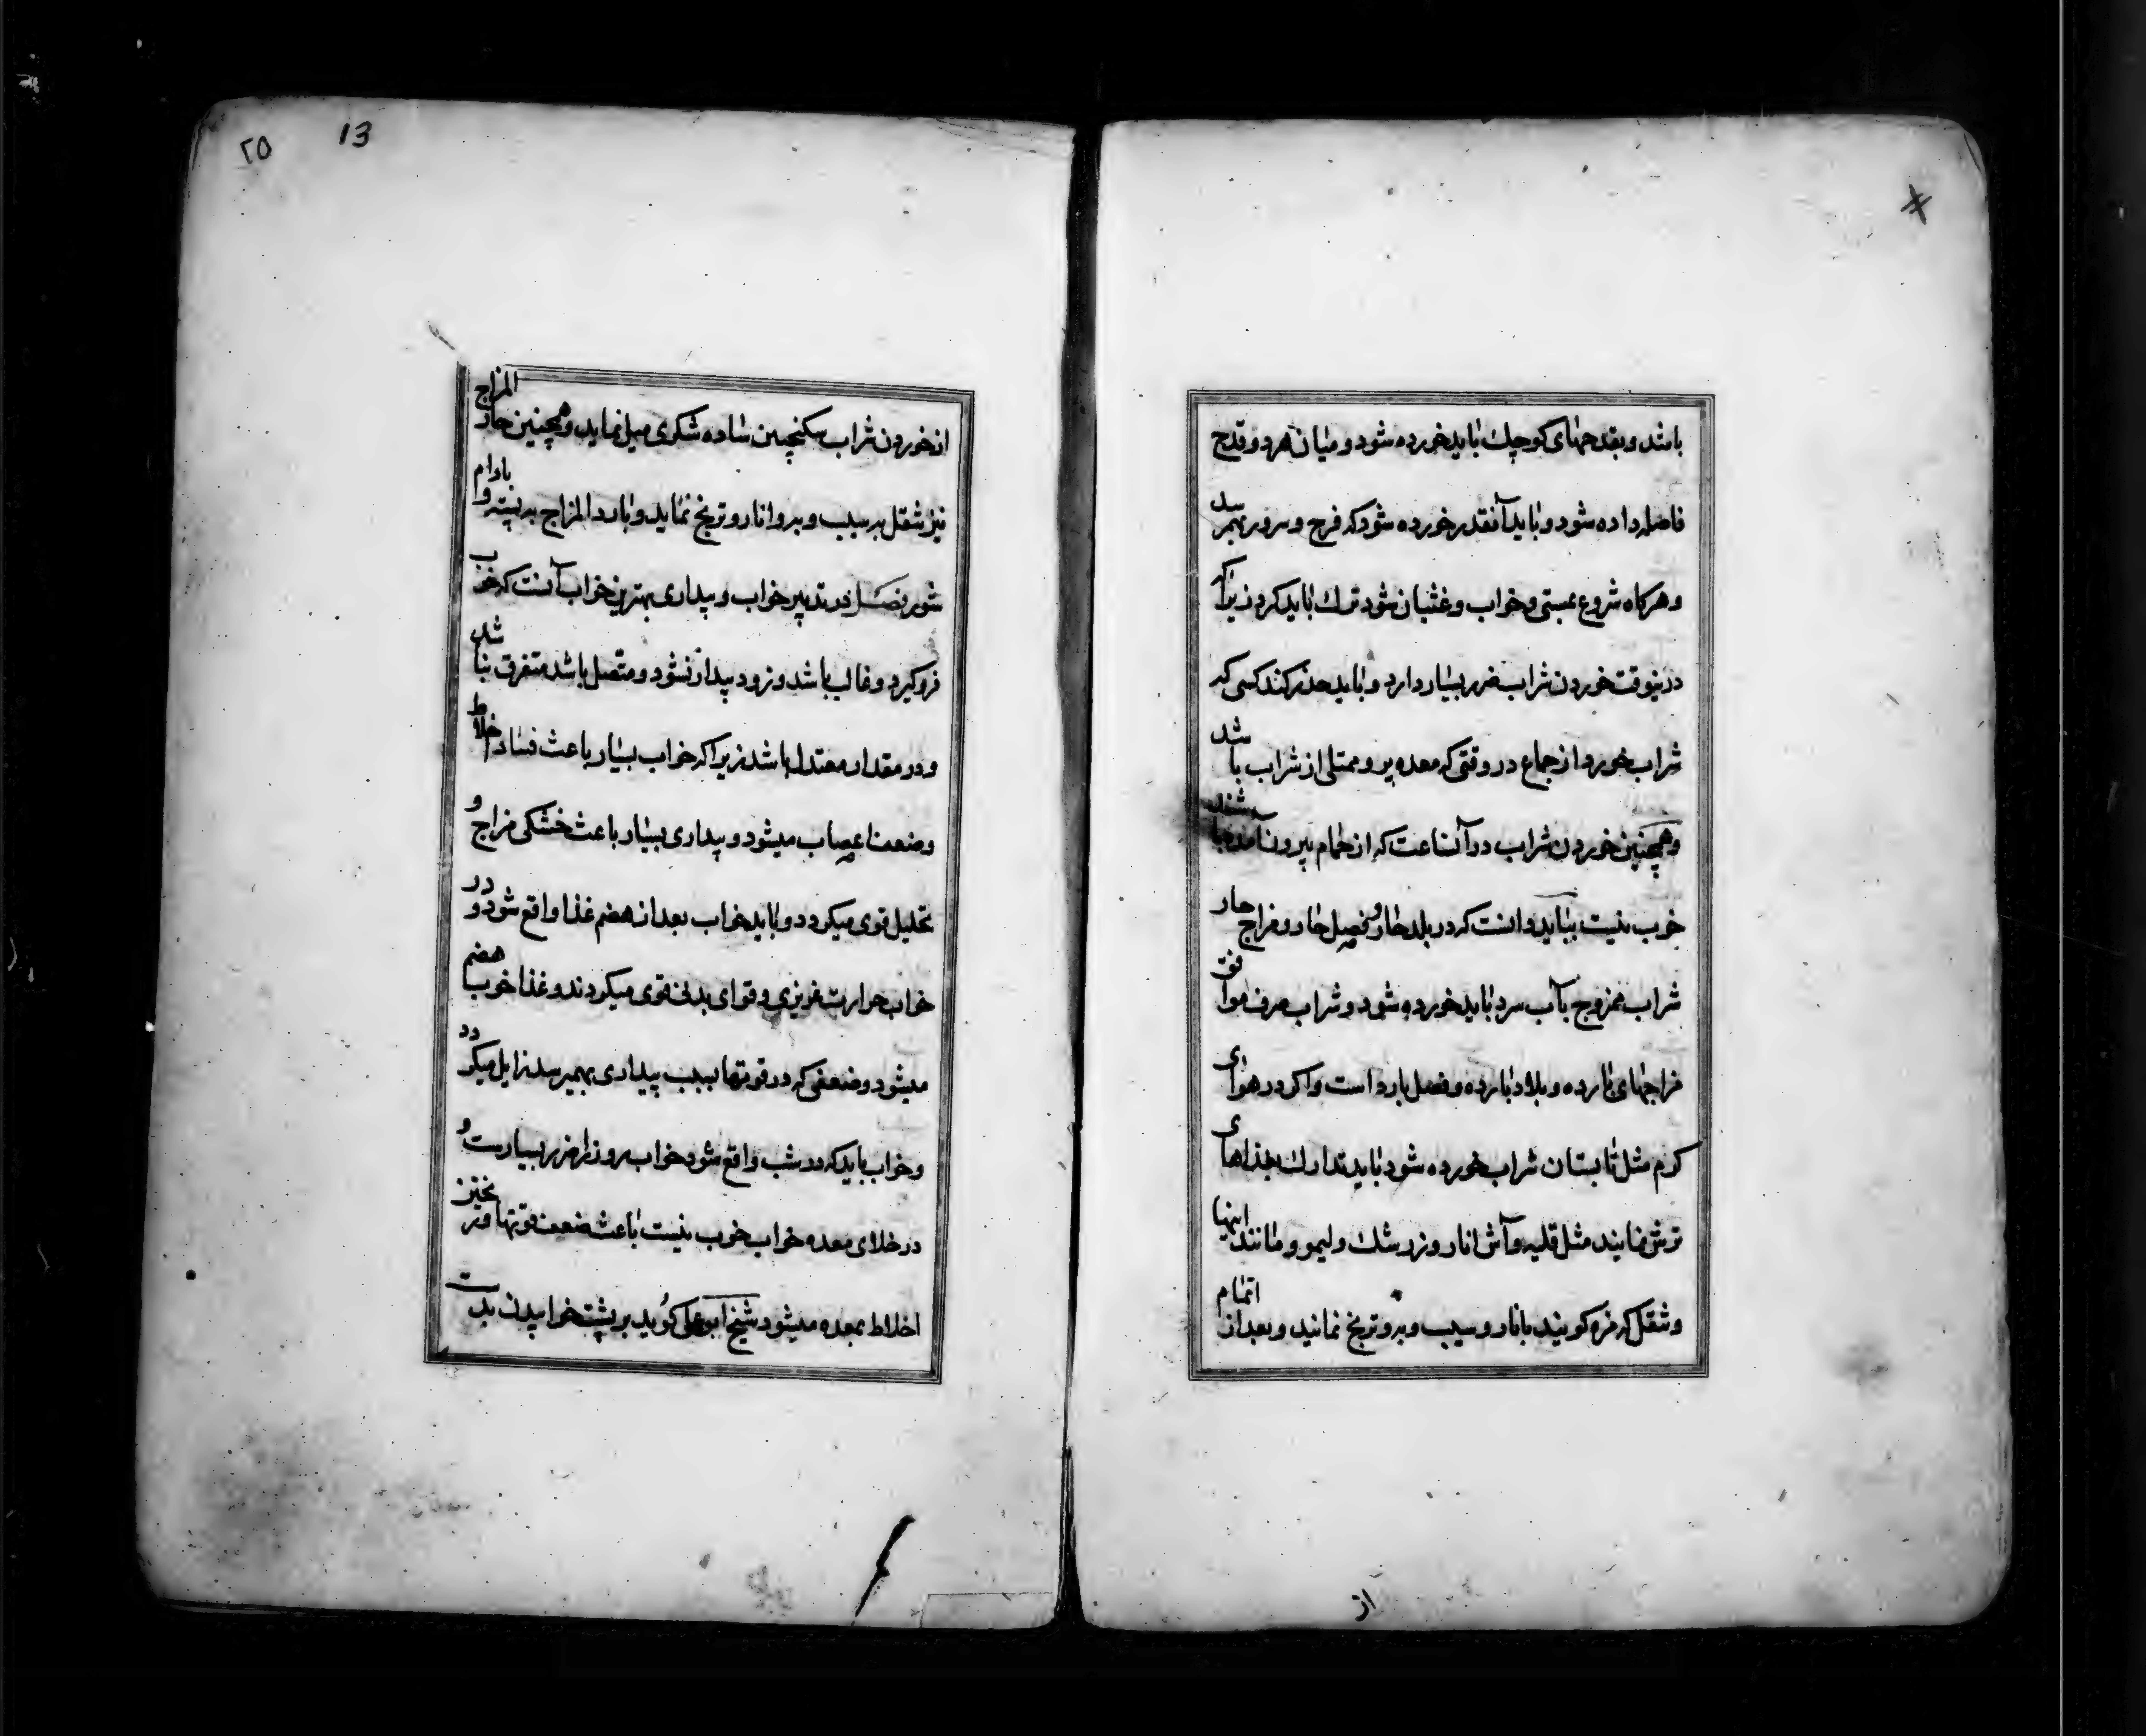 باشد و بقدحهای کوچک باید خورده شود و میان هر دو قدح
فاصله داده شود و باید آنقدر خورده شود که فرح و سرور بهمرسد
و هرکاه شروع بمستی و خواب و غثیان شود ترک باید کرد زیرا که
درینوقت خوردن شراب ضرر بسیار دارد و باید حذر کند کسی که
شراب خورد از جماع در وقتی که معده پر و ممتلی از شراب باشد
و همچنین خوردن شراب در آنساعت که از حمام بیرون آمده باشند
خوب نیست بباید دانست که در بلد حار و فصل حار و مزاج حار
شراب ممزوج بآب سرد باید خورده شود و شراب صرف موافق
مزاجهای بارده و بلاد بارده و فصل بارد است و اکر در هوای
کرم مثل تابستان شراب خورده شود باید تدارک بغذاهای
ترش نمایند مثل قلیه و آش انار و زرشک و لیمو و مانند اینها
و شقل که مزه کویند بانار و سیب و به و ترنج نمایند و بعد از اتمام
از
۲۵ 13
از خوردن شراب سکنجبین ساده شکری میل نماید و همچنین حار المزاج
نیز شقل به سیب و به و انار و ترنج نماید و بارد المزاج به پسته و بادام
شور فصل در تدبیر خواب و بیداری بهترین خواب آنست که خوب
فرو کیرد و غالب باشد و زود بیدار نشود و متصل باشد متفرق نباشد
و در مقدار معتدل باشد زیرا که خواب بسیار باعث فساد اخلاط
و ضعف اعصاب میشود و بیداری بسیار باعث خشکی مزاج و
تحلیل قوی میکردد و باید خواب بعد از هضم غذا واقع شود و در
خواب حرارت غریزی و قوای بدنی قوی میکردند و غذا خوب هضم
میشود و ضعفی که در قوتها بسبب بیداری بهمیرسد زایل میکردد
و خواب باید که در شب واقع شود خواب روز را ضرر بسیارست و
در خلای معده خواب خوب نیست باعث ضعف قوتها و
اخلاط بمعده میشود شیخ ابو علی کوید بر پشت خوابیدن بدست